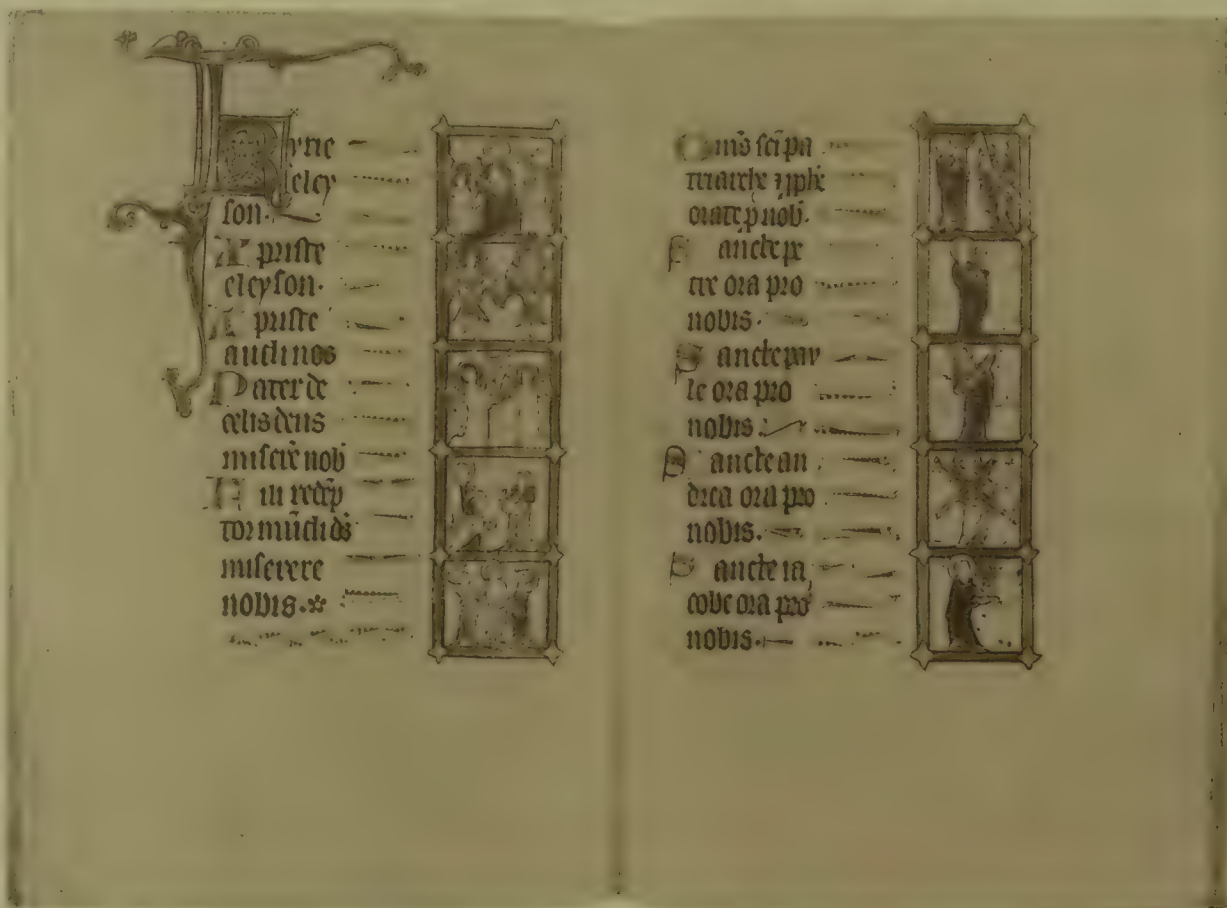 Kyrie
eley
son.
Xpriste
eleyson.
Xpriste
audi nos
Pater de
celis deus
miserē nob
Fili redēp
tor mūdi ds̄
miserere
nobis.
Om̄s sc̄i pa
triarche ⁊ ꝓphē
orate ꝓ nob.
Sancte pe
tre ora pro
nobis.
Sancte pau
le ora pro
nobis.
Sancte an
drea ora pro
nobis.
Sancte ia
cobe ora pro
nobis.